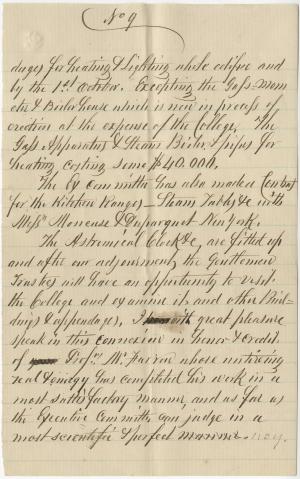 No 9
dages for heating & Lighting whole edifice and
by the 1st October. Excepting the Gass-Mom
eter & Boiler house which is now in process of
erection at the expense of the College, The
Gass Apparatus & Steam Boiler & pipes for
heating costing some $40.000.
The Ex Committe has also maded Contract
for the Kitchen Ranges - Steam Tables &c with
Messrs & Duparquet New York.
The Astromical Clock &c, are fitted up
and after our adjournment the Gentlemen
Trustees will have an opportunity to visit
the College and examine its and other Buil-
dings & appendages. I with great pleasure
speak in this connexion in honor & credit
of Profsr Mr. Farrar whose untiring
zeal & energy has completed his work in a
most satisfactory manner, and as far as
the Executive Committe can judge in a
most scientific & perfect manner.